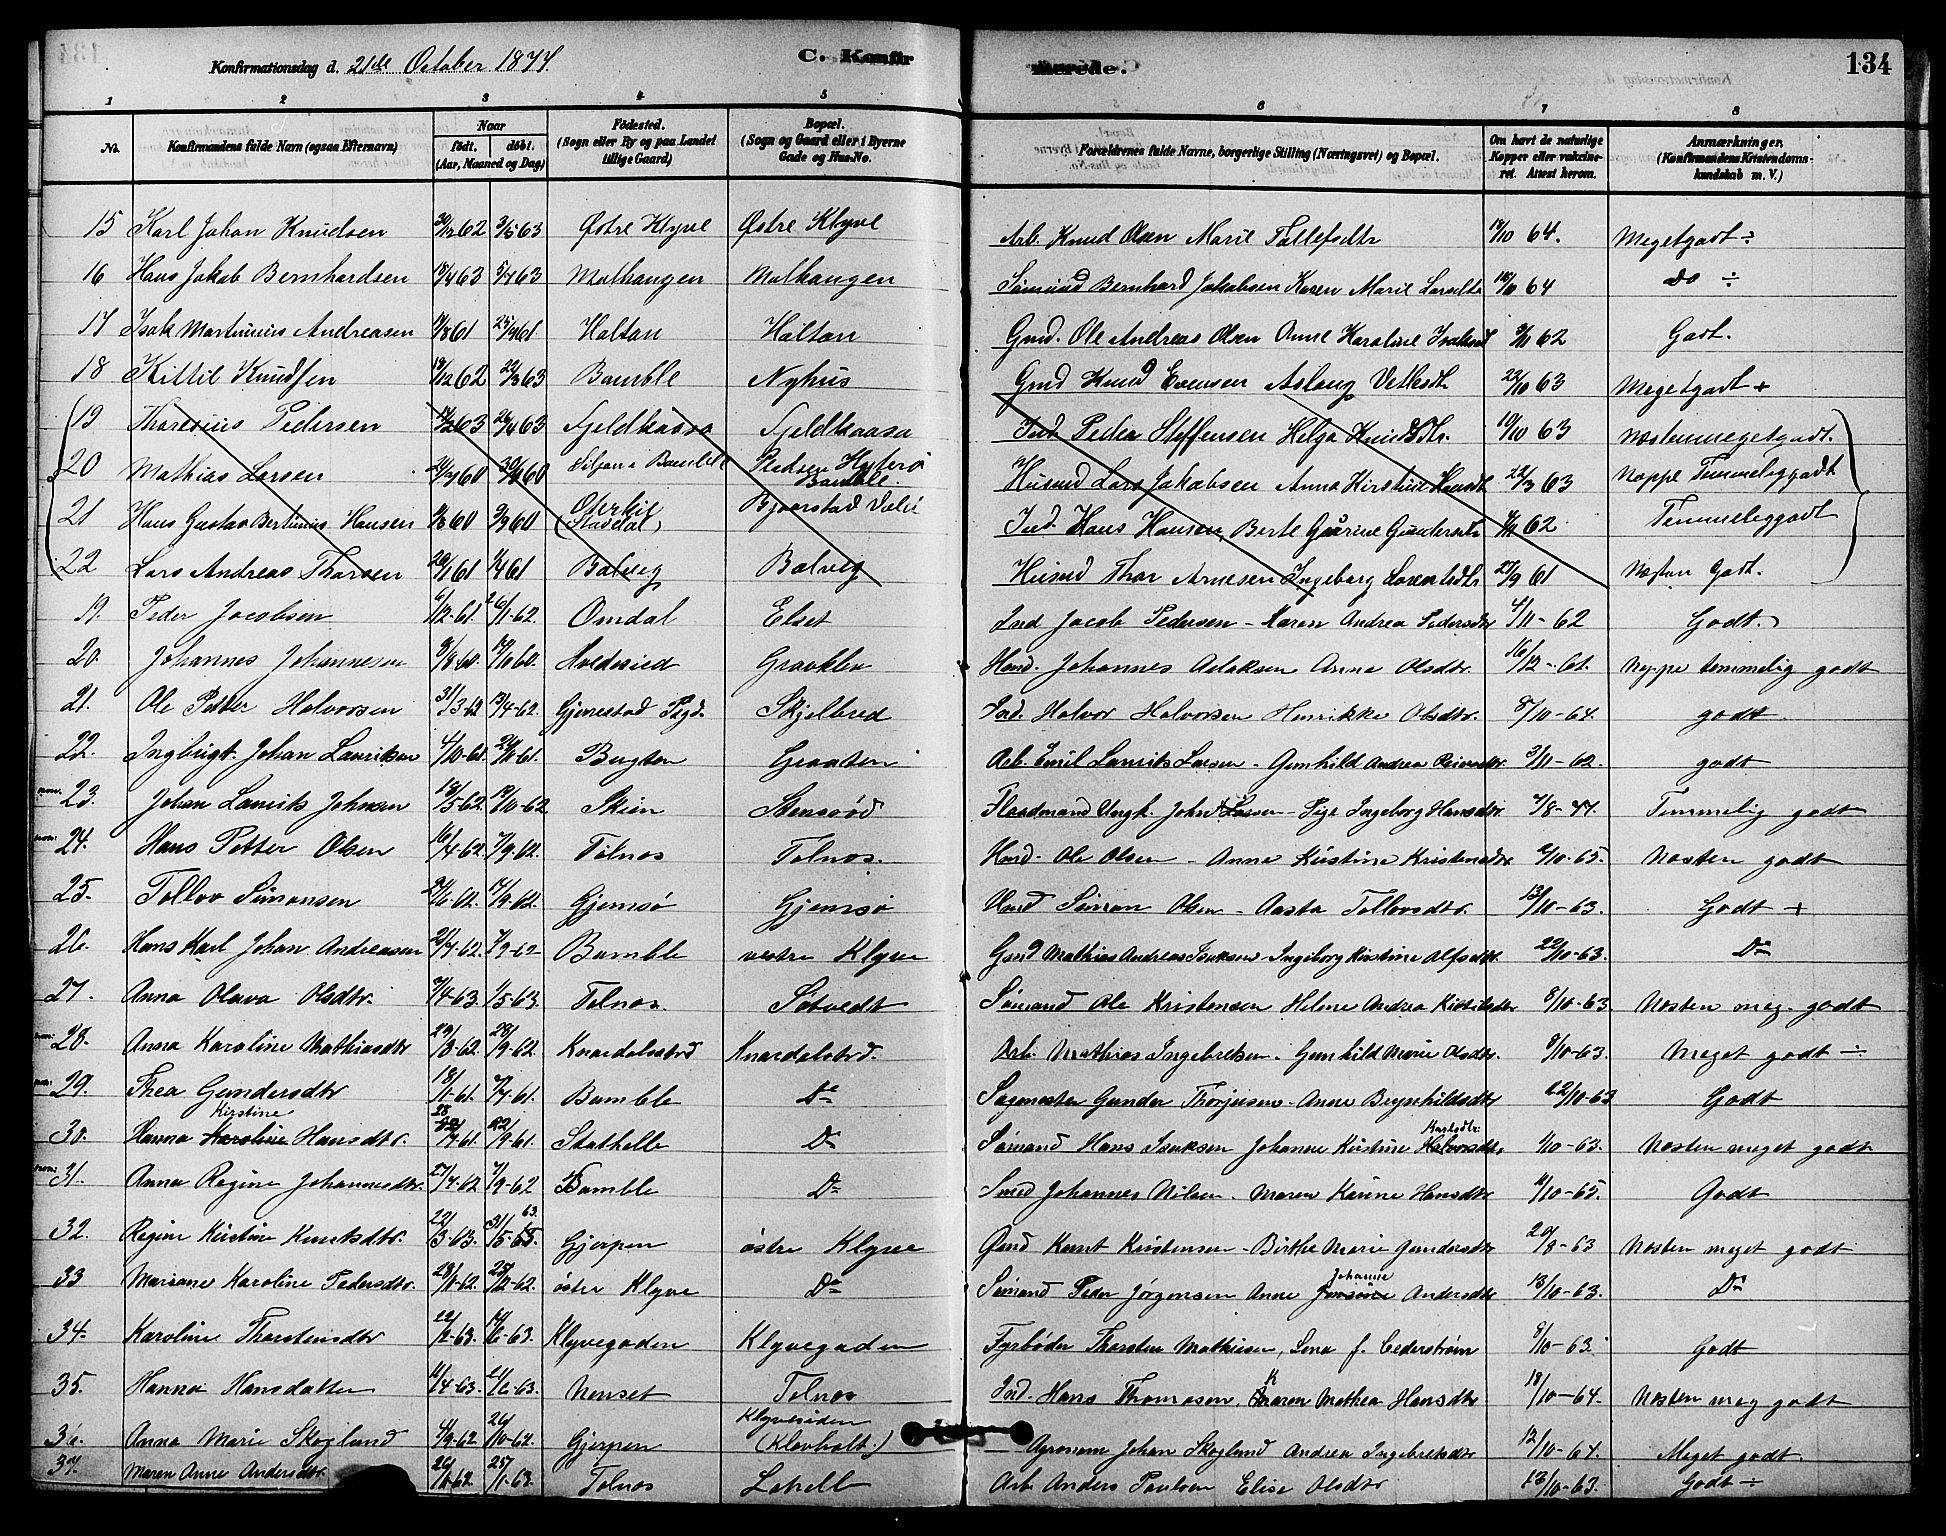 Konfirmationsdag d. 21de October 1877. C. Konfirmerede. 134
1 2 3 4 5 6 7 8
No. Konfirmandens fulde Navn (ogsaa Efternavn) Naar født. døbt. (Aar, Maaned og Dag) Fødested. (Sogn eller By og paa Landet tillige Gaard) Bopæl. (Sogn og Gaard eller i Byerne Gade og Hus-No. Forældrenes fulde Navne, borgerlige Stilling (Næringsvei) og Bopæl. Om havt de naturlige Kopper eller vakcineret. Attest herom. Anmærkninger. (Konfirmandens Kristendomskundskab m. V.)
15 Karl Johan Knudsen 30/12 62 3/5 63 Østre Klyve Østre Klyve Arb. Knud Olsen Marie Tollefsdtr 18/10 64. Megetgodt ÷
16 Hans Jakob Bernhardsen 63 5/4 63 Molhaugen Molhaugen Sømand Bernhard Jakobsen Karen Marie Larsdtr 18/10 64 Do ÷
17 Isak Martinius Andreasen 61 61 Holtan Holtan Gmd. Ole Andreas Olsen Anne Karoline 62 Godt.
18 Kittil Knudsen 62 63 Bamble Nyhus Gmd Knud Evensen Aslaug 22/10 63 Megetgodt +
19 Pedersen 63 63 Ind. Peder Steffensen Helga Knudsdtr. 19/10 63 Næstenmegetgodt.
20 Mathias Larsen 60 60 Bamble Bamble. Husmd Lars Jakobsen Anna Kirstine 22/3 63 Neppe Temmeliggodt
21 Hans Gustav Bertinius Hansen 60 3/9 60 Bjørstad Ind. Hans Hansen, Berte Gundersdtr 62 Temmeliggodt
22 Lars Andreas Thorsen 61 61 Bolvig Bolvig Husmd Thor Arnesen Ingeborg 27/9 61 Næsten Godt.
19. Peder Jacobsen 6/12-61. 26/1-62. Omdal Elset Ind Jacob Pedersen - Maren Andrea Pedersdtr 4/11-62 Godt.
20. Johannes Johannesen 8-60. 10 60. Graaklev Hmd. Johannes Anna Olsdtr. 16/12-61. Neppe temmelig godt
21. Ole Petter Halvorsen 31/3-62 13/4-62. Gjerestad Skjelbred Ind. Halvor Halvorsen Henrikke Olsdtr. 8/10-64. godt.
22. Ingbrigt Johan Lauriksen 4/10-61. 61. Bugten Graaten Arb. Emil Laurits Larsen - Gunhild Andrea 3/11-62. godt
23. Johan Laurits Johnsen 18/5-62 10-62 Skien Stensrød Flaadmand Ungk. John Larsen - Pige Ingeborg Hansdtr. 7/8-77. Temmelig godt
24. Hans Petter Olsen 16/4-62. 7/9-62. Tolnes Tolnes. Hmd. Ole Olsen - Anna Kirstine Kristensdtr 10-65. Næsten godt
25. Tollov Simonsen 6-62. 14/9-62. Gjemsø Gjemsø Hmd Simon Olsen - Aasta Tollovsdtr. 13/10-63. Godt +
26. Hans Karl Johan Andreasen 7-62. 7/9-62 Bamble vestre Klyve Gmd Mathias Andreas Isaksen - Ingeborg Kirstine Alfsdtr. 22/10-63. Do
27. Anna Olava Olsdtr. 4-63. 1/5-63. Tolnes. Søtvedt Sømand Ole Kristensen Helene Andrea 8/10-63. Næsten meg. godt
28. Anna Karoline Mathiasdtr 29/8-62. 28/9-62. Knardalsstrd Knardalstrd. Arb. Mathias Ingebretsen. Gunhild Marie Olsdtr. 8/10-63. Meget godt ÷
29. Thea Gundersdtr 18/1-61. 7/4-61. Bamble Do Sagmester Gunder Thorjusen - Anne Brynhildsdtr 22/10-63 Godt
Kirstine
30. Hanna Karoline Hansdtr. 28/7-61. 22/9-61. Stathelle Do Sømand Hans Isaksen Johanne Kirstine Halvorsdtr. 10-63. Næsten meget godt.
31. Anna Regine Johannesdtr. 27/7-62 7/9-62 Bamble Do Smed Johannes Nilsen. Maren Karine Hansdtr 10-65. Godt
32. Regine Kirstine Knutsdtr. 22/3-63. 31/5-63. Gjerpen østre Klyve Gmd Knut Kristensen - Birthe Marie Gundersdtr 20/8-63 Næsten meget godt
33 Mariane Karoline Pedersdtr. 23/11-62. 25/12-62. østre Klyve Do Sømand Peder Jørgensen Anne Johanne Andersdtr 13/10-63. Do
34. Karoline Thorstensdtr 22/2-63. 14/6-63. Klyvegaden Klyvegaden Fyrbøder Thorsten Mathisen, Lena f. Cederstrøm 8/10-63. Godt
35. Hanna Hansdatter 16/4-63. 21/6-63. Nenset Tolnes Ind. Hans Thomasen, Karen Mathea Hansdtr. 18/10-64. Næsten meg godt
36. Anna Marie Skoglund 9-62. 26/10-62. Gjerpen Klyvesiden (Klovholt.) - Agronom Johan Skoglund Andrea Ingebretsdtr 12/10-64. Meget godt.
37. Maren Anne Andersdtr. 26/11-62 25/1-63. Tolnes Arb. Anders Paulsen Elise Olsdtr 13/10-63. Godt ÷